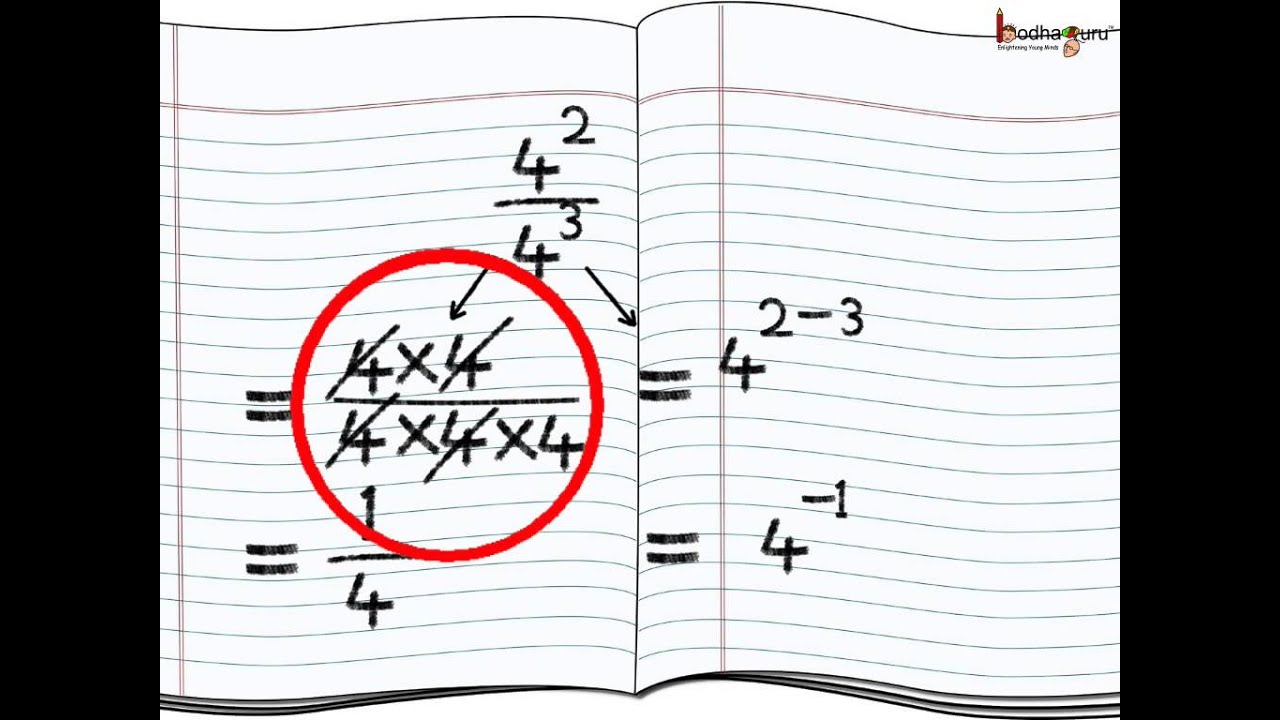 bodhaguru™
Enlightening Young Minds
4²
4³
= 4×4
4×4×4
= 1
4
= 4²⁻³
= 4⁻¹